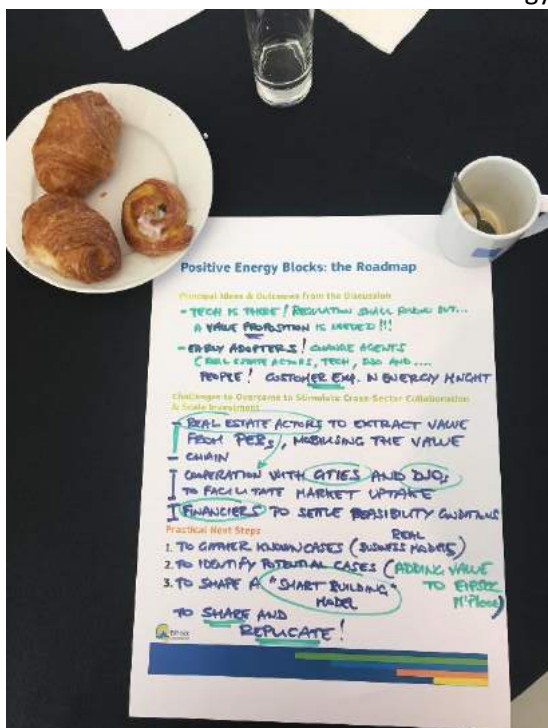 Positive Energy Blocks: the Roadmap
Principal Ideas & Outcomes from the Discussion
- TECH IS THERE! REGULATION SHALL FOLLOW BUT...
A VALUE PROPOSITION IS NEEDED!!!
- EARLY ADOPTERS! CHANGE AGENTS
(REAL ESTATE ACTORS, TECH, DSO AND ....
PEOPLE! CUSTOMER EMP. IN ENERGY MNGHT
Challenges to Overcome to Stimulate Cross-Sector Collaboration
& Scale Investment
- REAL ESTATE ACTORS TO EXTRACT VALUE
FROM PEBs, MOBILISING THE VALUE
- CHAIN
COOPERATION WITH CITIES AND DSOs
TO FACILITATE MARKET UPTAKE
FINANCIERS TO SETTLE FEASIBILITY CONDITIONS
Practical Next Steps
REAL
1. TO GATHER KNOWN CASES (BUSINESS MODELS)
2. TO IDENTIFY POTENTIAL CASES (ADDING VALUE
TO EIPSCC
M'Place)
3. TO SHAPE A "SMART BUILDING"
MODEL
TO SHARE AND
REPLICATE!